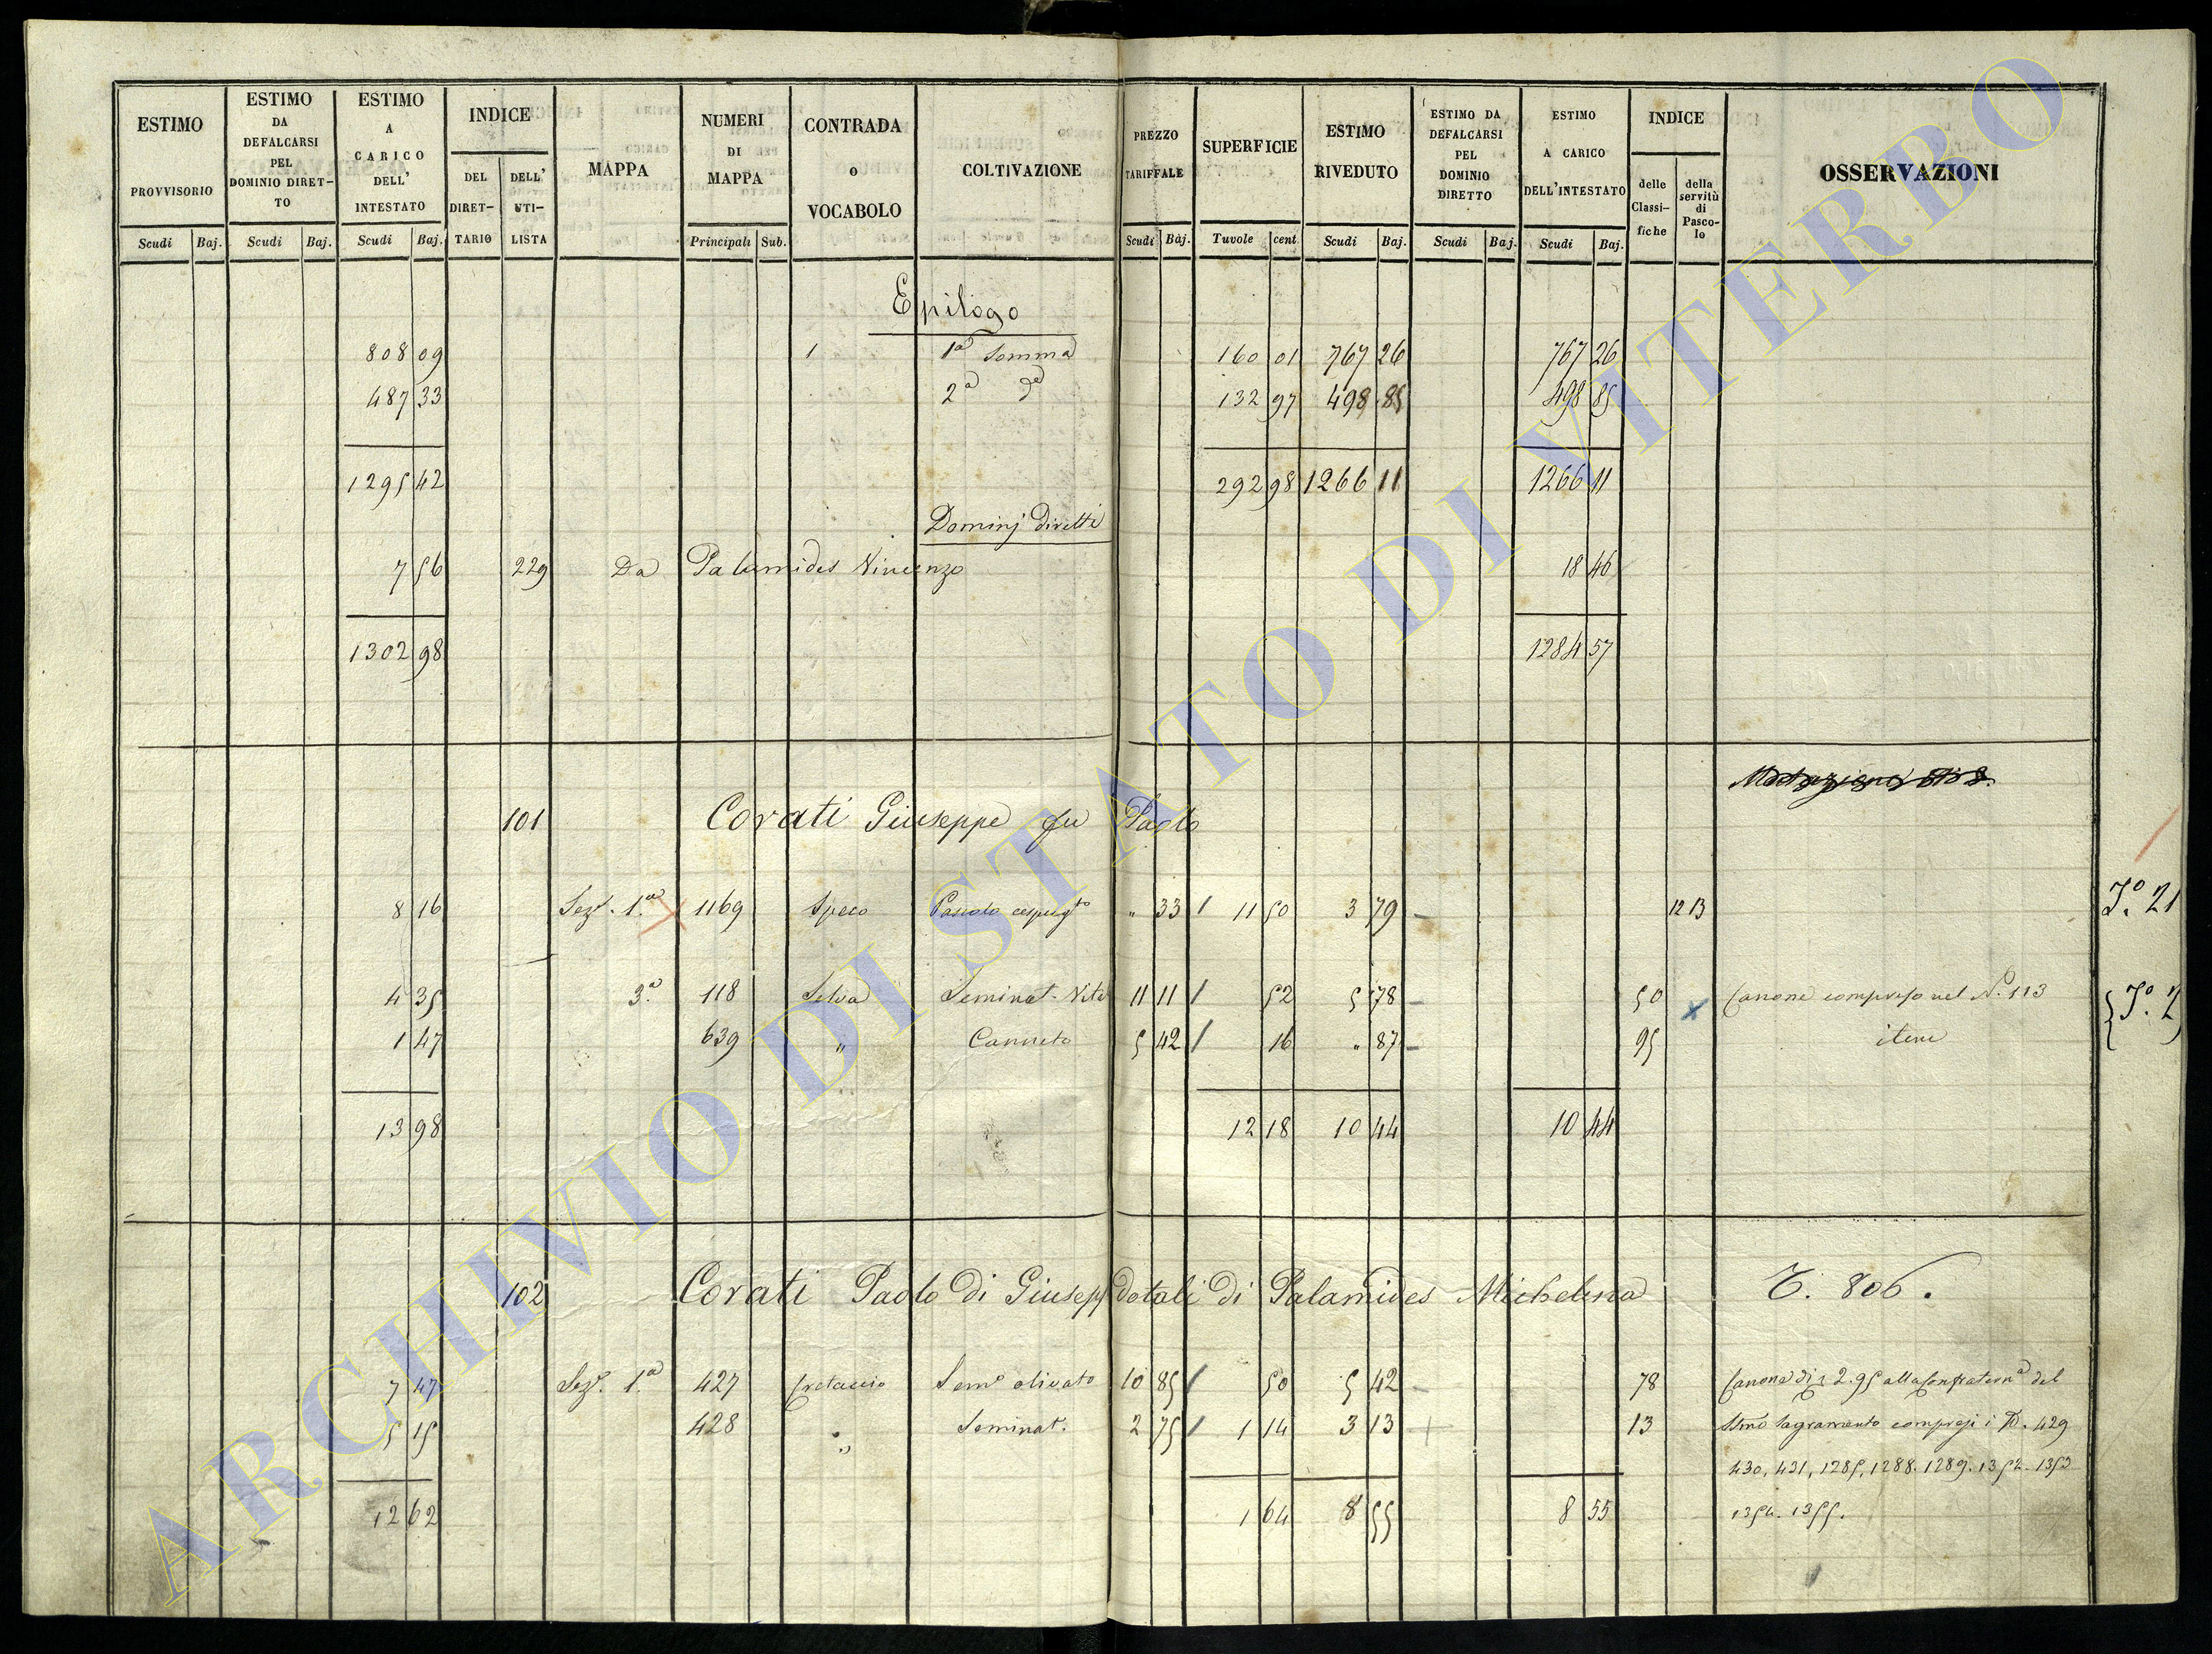 ESTIMO PROVVISORIO Scudi Baj. | ESTIMO DA DEFALCARSI PEL DOMINIO DIRET-TO Scudi Baj. | ESTIMO A CARICO DELL' INTESTATO Scudi Baj. | INDICE DEL DIRET-TARIO | DELL' UTI-LISTA | MAPPA | NUMERI DI MAPPA Principali Sub. | CONTRADA o VOCABOLO | COLTIVAZIONE | PREZZO TARIFFALE Scudi Baj. | SUPERFICIE Tavole cent. | ESTIMO RIVEDUTO Scudi Baj. | ESTIMO DA DEFALCARSI PEL DOMINIO DIRETTO Scudi Baj. | ESTIMO A CARICO DELL'INTESTATO Scudi Baj. | INDICE delle Classi-fiche | della servitù di Pasco-lo | OSSERVAZIONI
Epilogo
808 09 1 1ª Somma 160 01 767 26 767 26
487 33 2ª dª 132 97 498 85 498 85
1295 42 292 98 1266 11 1266 11
Dominj diretti
7 56 229 Da Palamides Vincenzo 18 46
1302 98 1284 57
101 Corati Giuseppe fu Paolo
8 16 Sezᵉ. 1.ª 1169 Speco Pascolo cespugᵗᵒ " 33 / 11 50 3 79 – 12 13 Fº. 21
4 35 3.ª 118 Selva Seminat. Vitᵗᵒ 11 11 / 52 5 78 – 50 x Canone compreso nel N.º 113 Fº. 2
1 47 639 " Canneto 5 42 / 16 " 87 – 95 item
13 98 12 18 10 44 10 44
102 Corati Paolo di Giusepp dotali di Palamides Michelina T. 806.
7 47 Sezᵉ. 1.ª 427 Cretaccio Semᵒ olivato 10 85 / 50 5 42 – 78 Canone di 2.95 alla Confraternª del
5 15 428 " Seminat. 2 75 / 1 14 3 13 + 13 Smo Sagramento compresi i N. 429
430, 431, 1285, 1288. 1289. 1352. 1353
12 62 1 64 8 55 8 55 1354. 1355.
ARCHIVIO DI STATO DI VITERBO